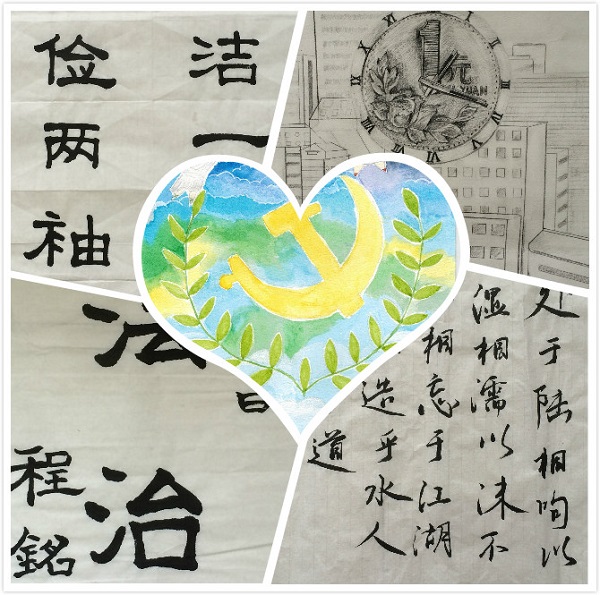 洁一
俭两袖
1元
YUAN
法治
程銘
处于陆相呴以
湿相濡以沫不
相忘于江湖
造乎水人
道